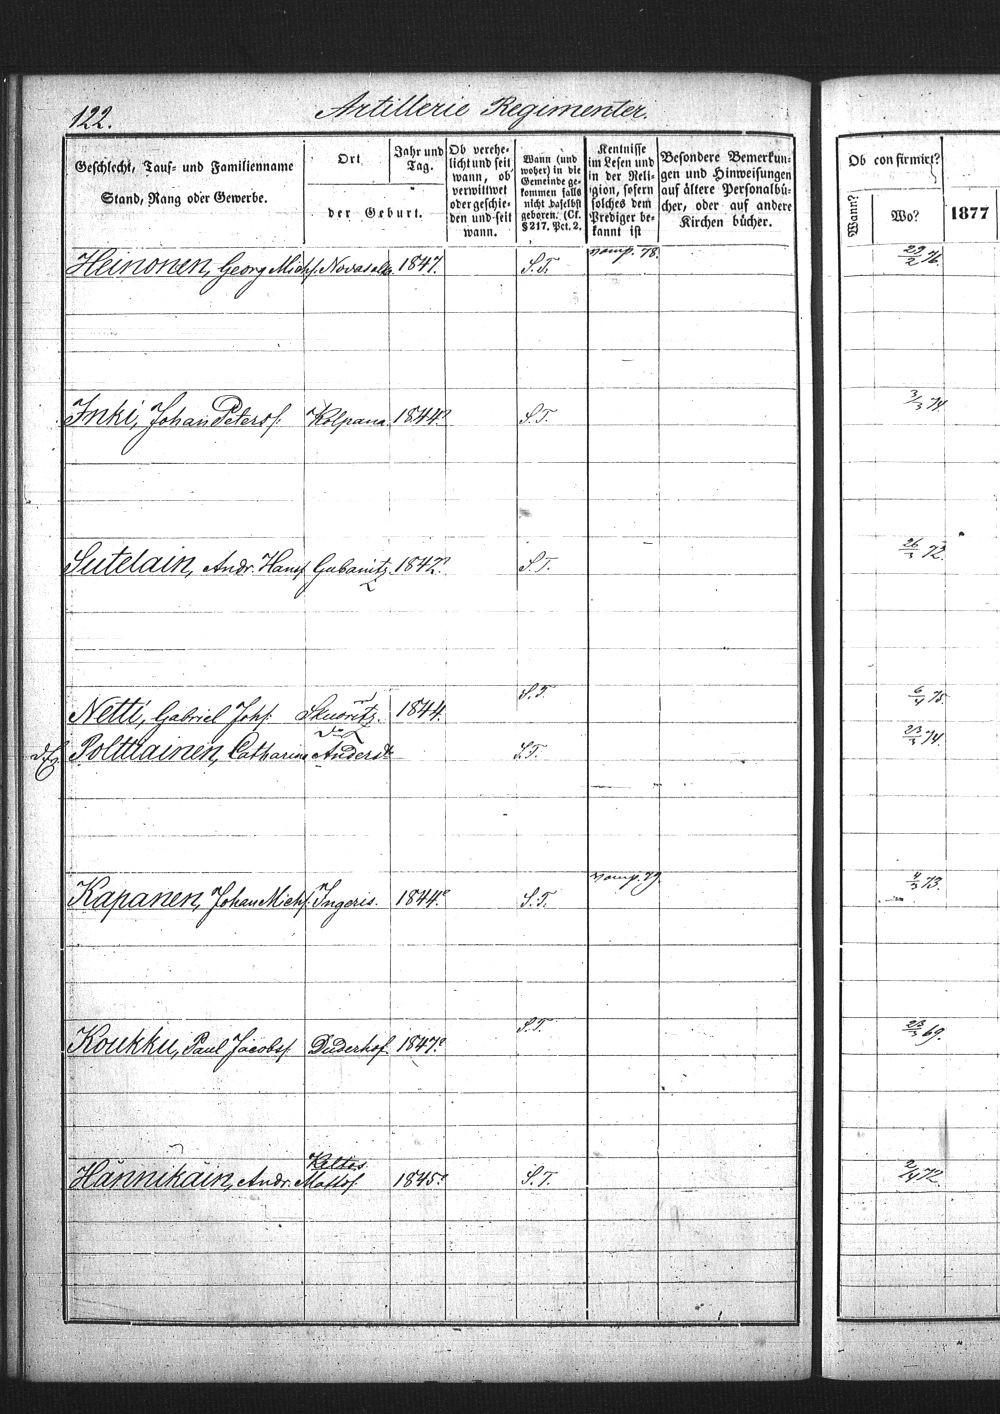 122.
Artillerie Regimenter.
Geschlecht, Tauf- und Familienname
Stand, Rang oder Gewerbe.
Ort
der Geburt.
Jahr und
Tag.
Ob verehe-
licht und seit
wann, ob
verwittwet
oder geschie-
den und seit
wann.
Wann (und
woher) in die
Gemeinde ge-
kommen falls
nicht daselbst
geboren. (Cf.
§ 217. Pct. 2.
Kentnisse
im Lesen und
in der Reli-
gion, sofern
solches dem
Prediger be-
kannt ist
Besondere Bemerkun-
gen und Hinweisungen
auf ältere Personalbü-
cher, oder auf andere
Kirchen bücher.
Ob confirmirt?
Wann?
Wo?
1877
Heinonen, Georg Michs. 1847. S.T. 78. 29/2 76.
Inki, Johan Peters. Kolpana 1844? S.T. 3/3 74.
Sutelain, Andr. Hans. Gubanitz 1842? S.T. 26/3 72.
Netti, Gabriel Johs. Skuoritz. 1844. S.T. 6/4 75.
Polttiainen, Catharina Andersdr S.T. 23/3 74.
Kapanen, Johan Michs. Ingeris. 1844? S.T. 79. 4/3 73.
Koukku, Paul Jacobs. Duderhof. 1847? S.T. 23/3 69.
Keltos
Hännikäin, Andr. Matts. 1845? S.T. 2/4 72.